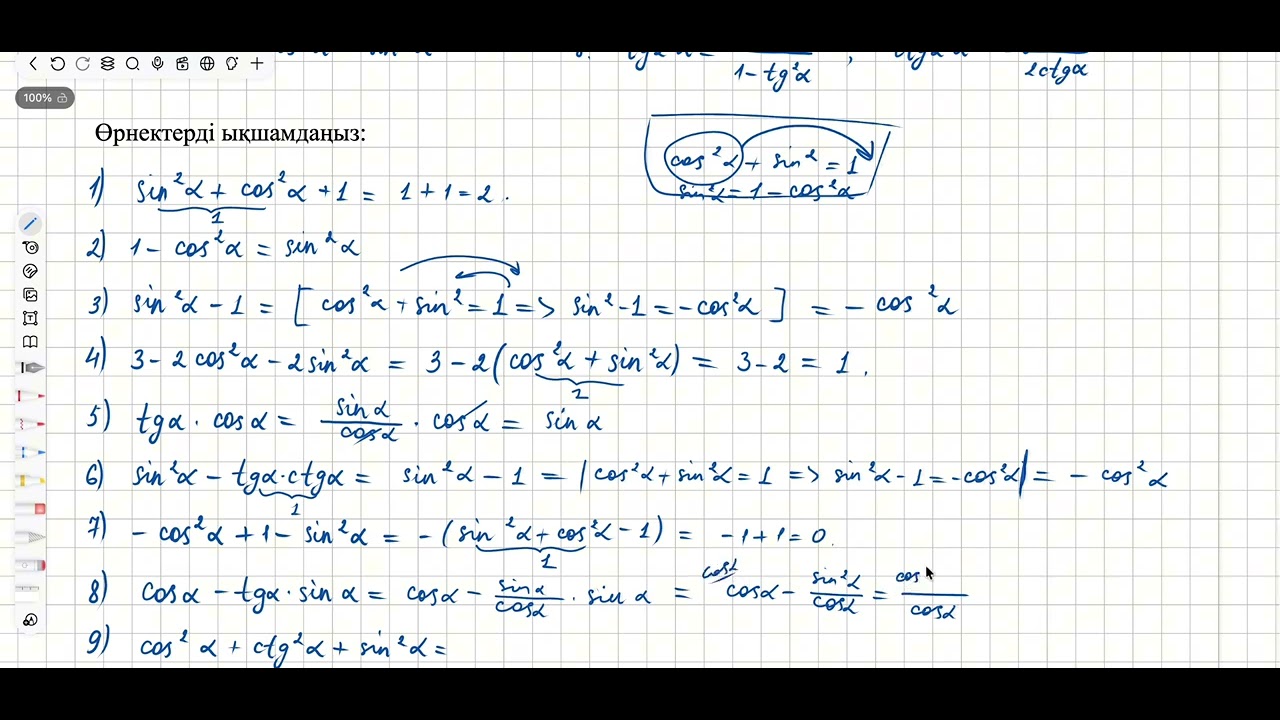 tg2α = / 1 - tg²α ,
2ctgα
100%
Өрнектерді ықшамдаңыз:
cos²α + sin² = 1
sin²α = 1 - cos²α
1) sin²α + cos²α + 1 = 1 + 1 = 2 .
1
2) 1 - cos²α = sin²α
3) sin²α - 1 = [ cos²α + sin² = 1 => sin² - 1 = - cos²α ] = - cos²α
4) 3 - 2 cos²α - 2 sin²α = 3 - 2 (cos²α + sin²α) = 3 - 2 = 1 .
2
5) tgα · cosα = sinα / cosα · cosα = sinα
6) sin²α - tgα · ctgα = sin²α - 1 = | cos²α + sin²α = 1 => sin²α - 1 = - cos²α | = - cos²α
1
7) - cos²α + 1 - sin²α = - (sin²α + cos²α - 1) = - 1 + 1 = 0 .
1
8) cosα - tgα · sinα = cosα - sinα / cosα · sinα = cosα cosα - sin²α / cosα = cos / cosα
9) cos²α + ctg²α + sin²α =